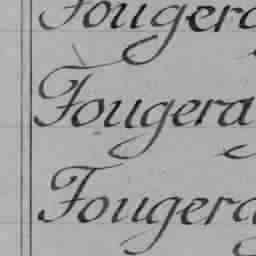 Fougera
Fougera
Fougera